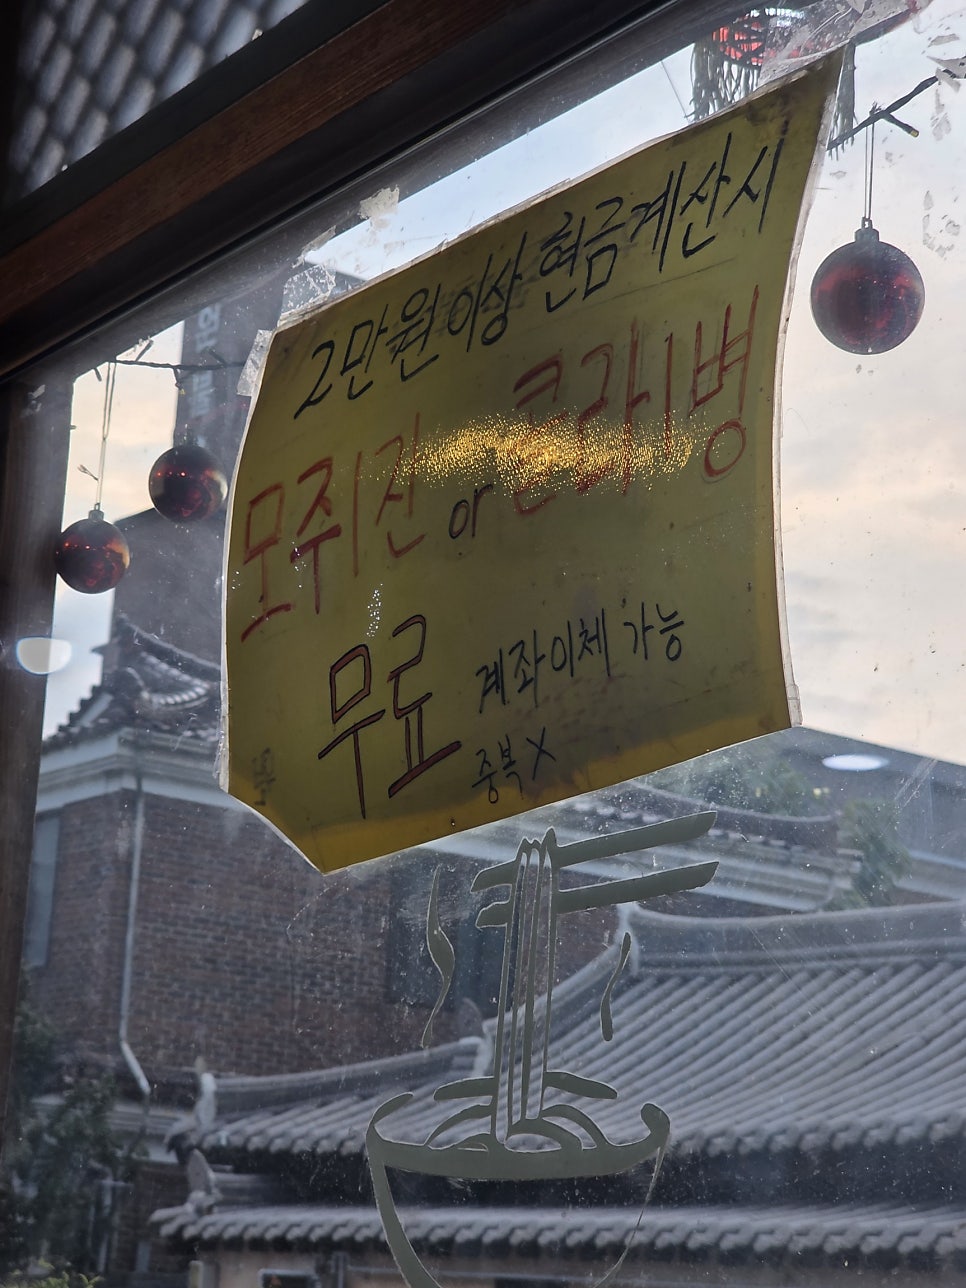 2만원 이상 현금계산시
모주1잔 or 콜라1병
무료 계좌이체 가능
중복X